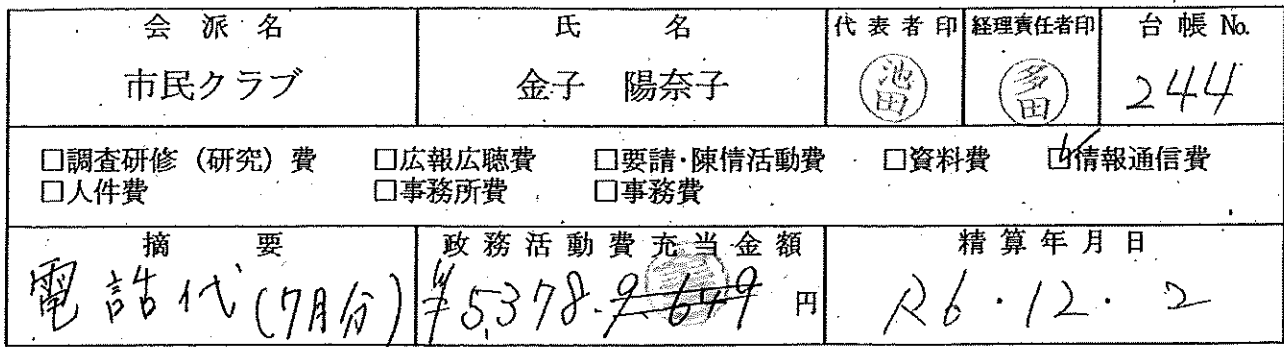 会派名 氏名 代表者印 経理責任者印 台帳 No.
市民クラブ 金子 陽奈子 池田 多田 244
□調査研修(研究)費 □広報広聴費 □要請・陳情活動費 □資料費 ☑情報通信費
□人件費 □事務所費 □事務費
摘要 政務活動費充当金額 精算年月日
電話代(7月分) ¥5,378. 9,649 円 R6・12・2